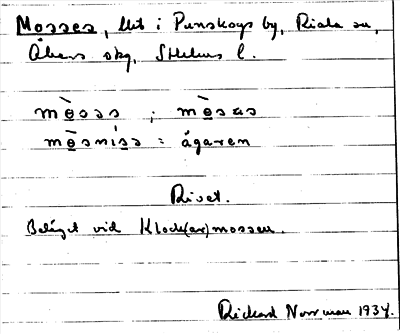 Mosses, lht i Punskogs by, Riala sn,
Åkers skg, Sthlms l.
mòsəs ; mòsəs
mòsnísə = ägaren
Rivet.
Beläget vid Klock(ar)mossen.
Rickard Norrman 1934.